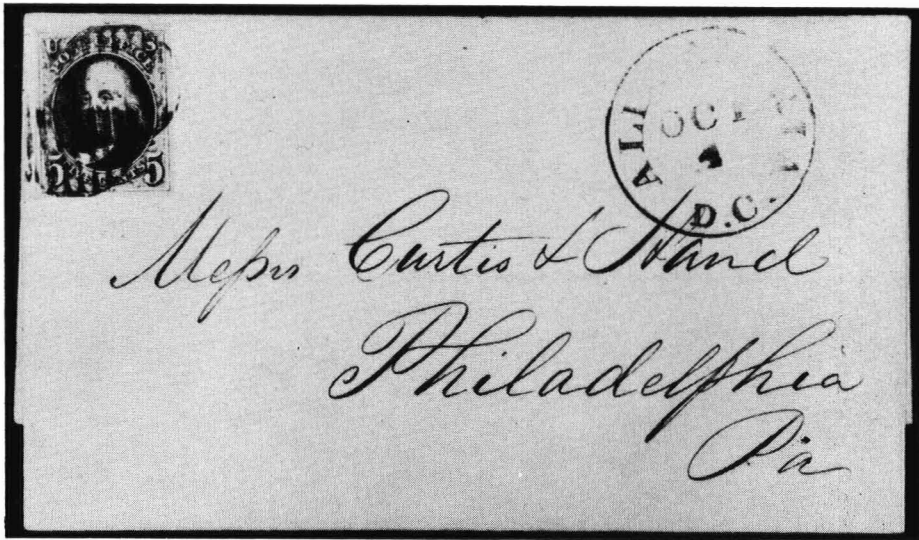 5 5
OCT
D.C.
Messrs Curtis & Hand
Philadelphia
Pa